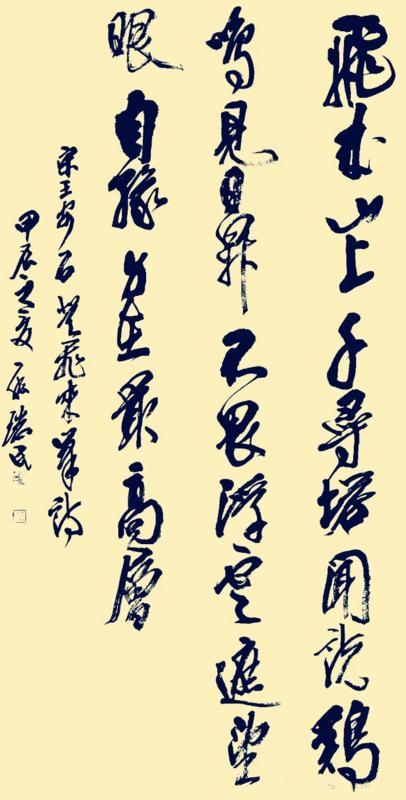 飛来山上千尋塔聞說鷄
鳴見日昇不畏浮雲遮望
眼自緣身在最高層
宋王安石登飛来峯詩
甲辰之夏